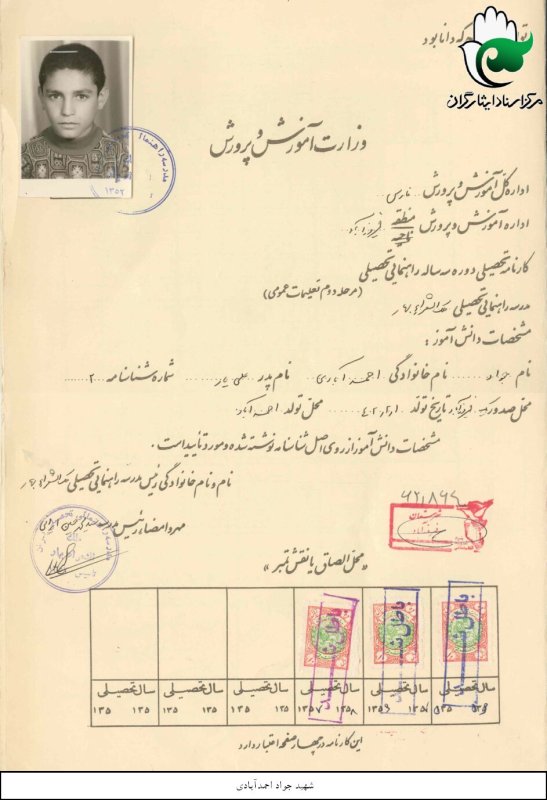 که دانا بود
مرکز اسناد ایثارگران
مدرسه راهنمائی
۱۳۵۲
وزارت آموزش و پرورش
اداره کل آموزش و پرورش فارس
اداره آموزش و پرورش منطقه ناحیه فیروزآباد
کارنامه تحصیلی دوره سه ساله راهنمایی تحصیلی
(مرحله دوم تعلیمات عمومی)
مدرسه راهنمائی تحصیلی ملک الشعراء بهار
مشخصات دانش آموز :
نام جواد نام خانوادگی احمدآبادی نام پدر علی یار شماره شناسنامه ۲
محل صدور فیروزآباد تاریخ تولد محل تولد احمدآباد
مشخصات دانش آموز از روی اصل شناسنامه نوشته شده و مورد تأیید است .
نام و نام خانوادگی رئیس مدرسه راهنمایی تحصیلی ملک الشعراء بهار
مهر و امضاء رئیس مدرسه
« محل الصاق یا نقش تمبر »
باطل شد باطل شد
سال تحصیلی سال تحصیلی سال تحصیلی سال تحصیلی سال تحصیلی سال تحصیلی
۱۳۵۷ ۱۳۵۸ ۱۳۵ ۱۳۵ ۱۳۵ ۱۳۵ ۱۳۵ ۱۳۵
این کارنامه در چهار صفحه اعتبار دارد
شهید جواد احمدآبادی